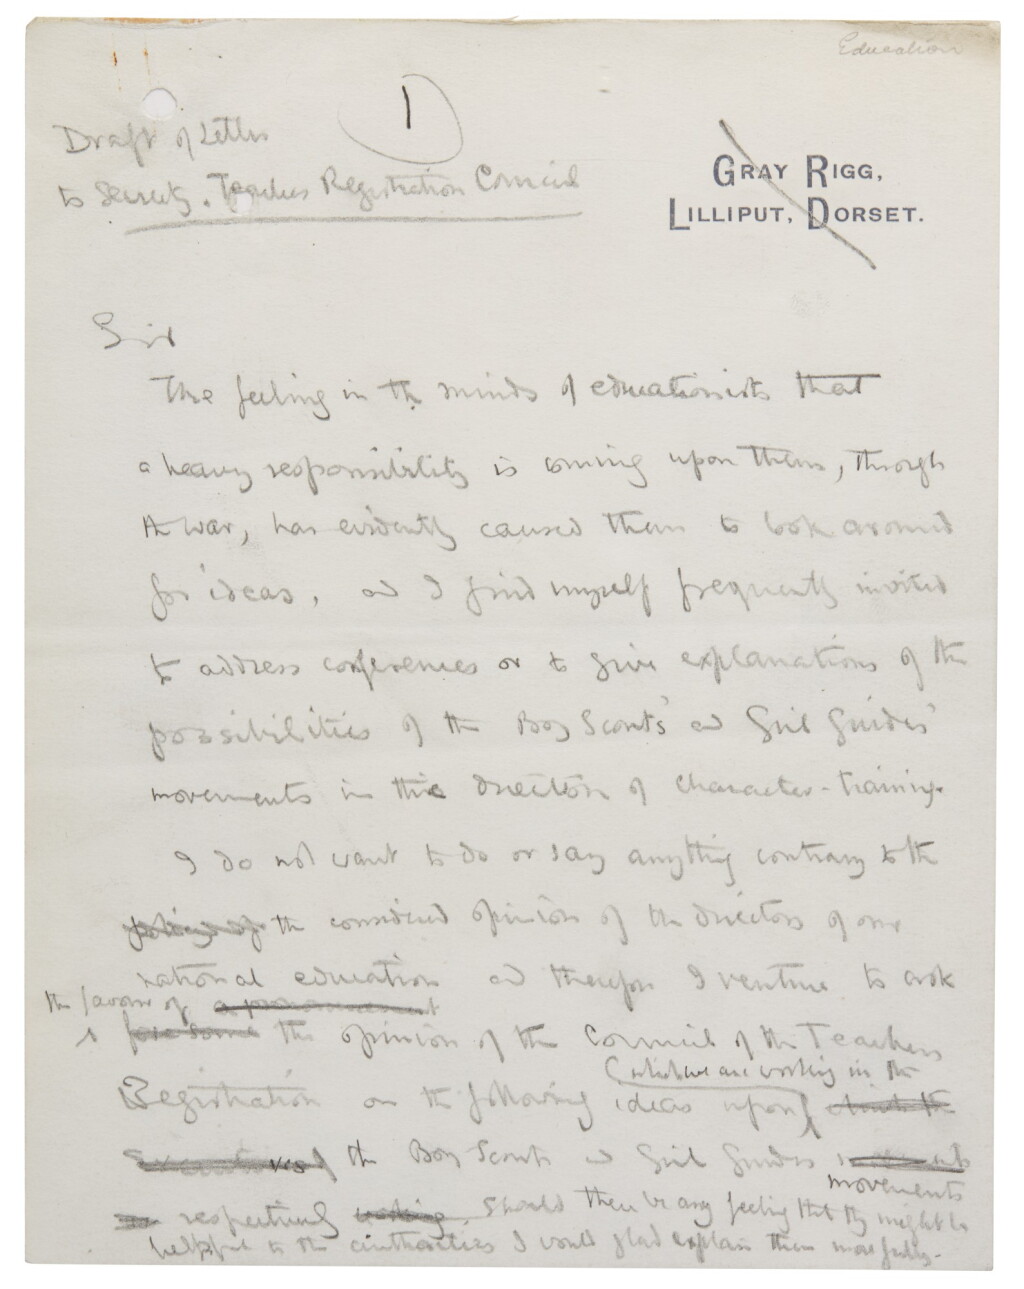 Education
1
Draft of Letter
to Secrety. Teachers Registration Council
GRAY RIGG,
LILLIPUT, DORSET.
Sir
The feeling in the minds of educationists that
a heavy responsibility is coming upon them, through
the war, has evidently caused them to look around
for ideas, and I find myself frequently invited
to address conferences or to give explanations of the
possibilities of the Boy Scouts' and Girl Guides'
movements in the direction of character-training.
I do not want to do or say anything contrary to the
the considered opinion of the directors of our
national education and therefore I venture to ask
the favour of a pronouncement
for some the opinion of the Council of the Teachers
(which we are working in the
Registration on the following ideas upon
the Boy Scouts and Girl Guides
movements
respectively working. Should there be any feeling that they might be
helpful to the authorities I would glad explain them more fully.